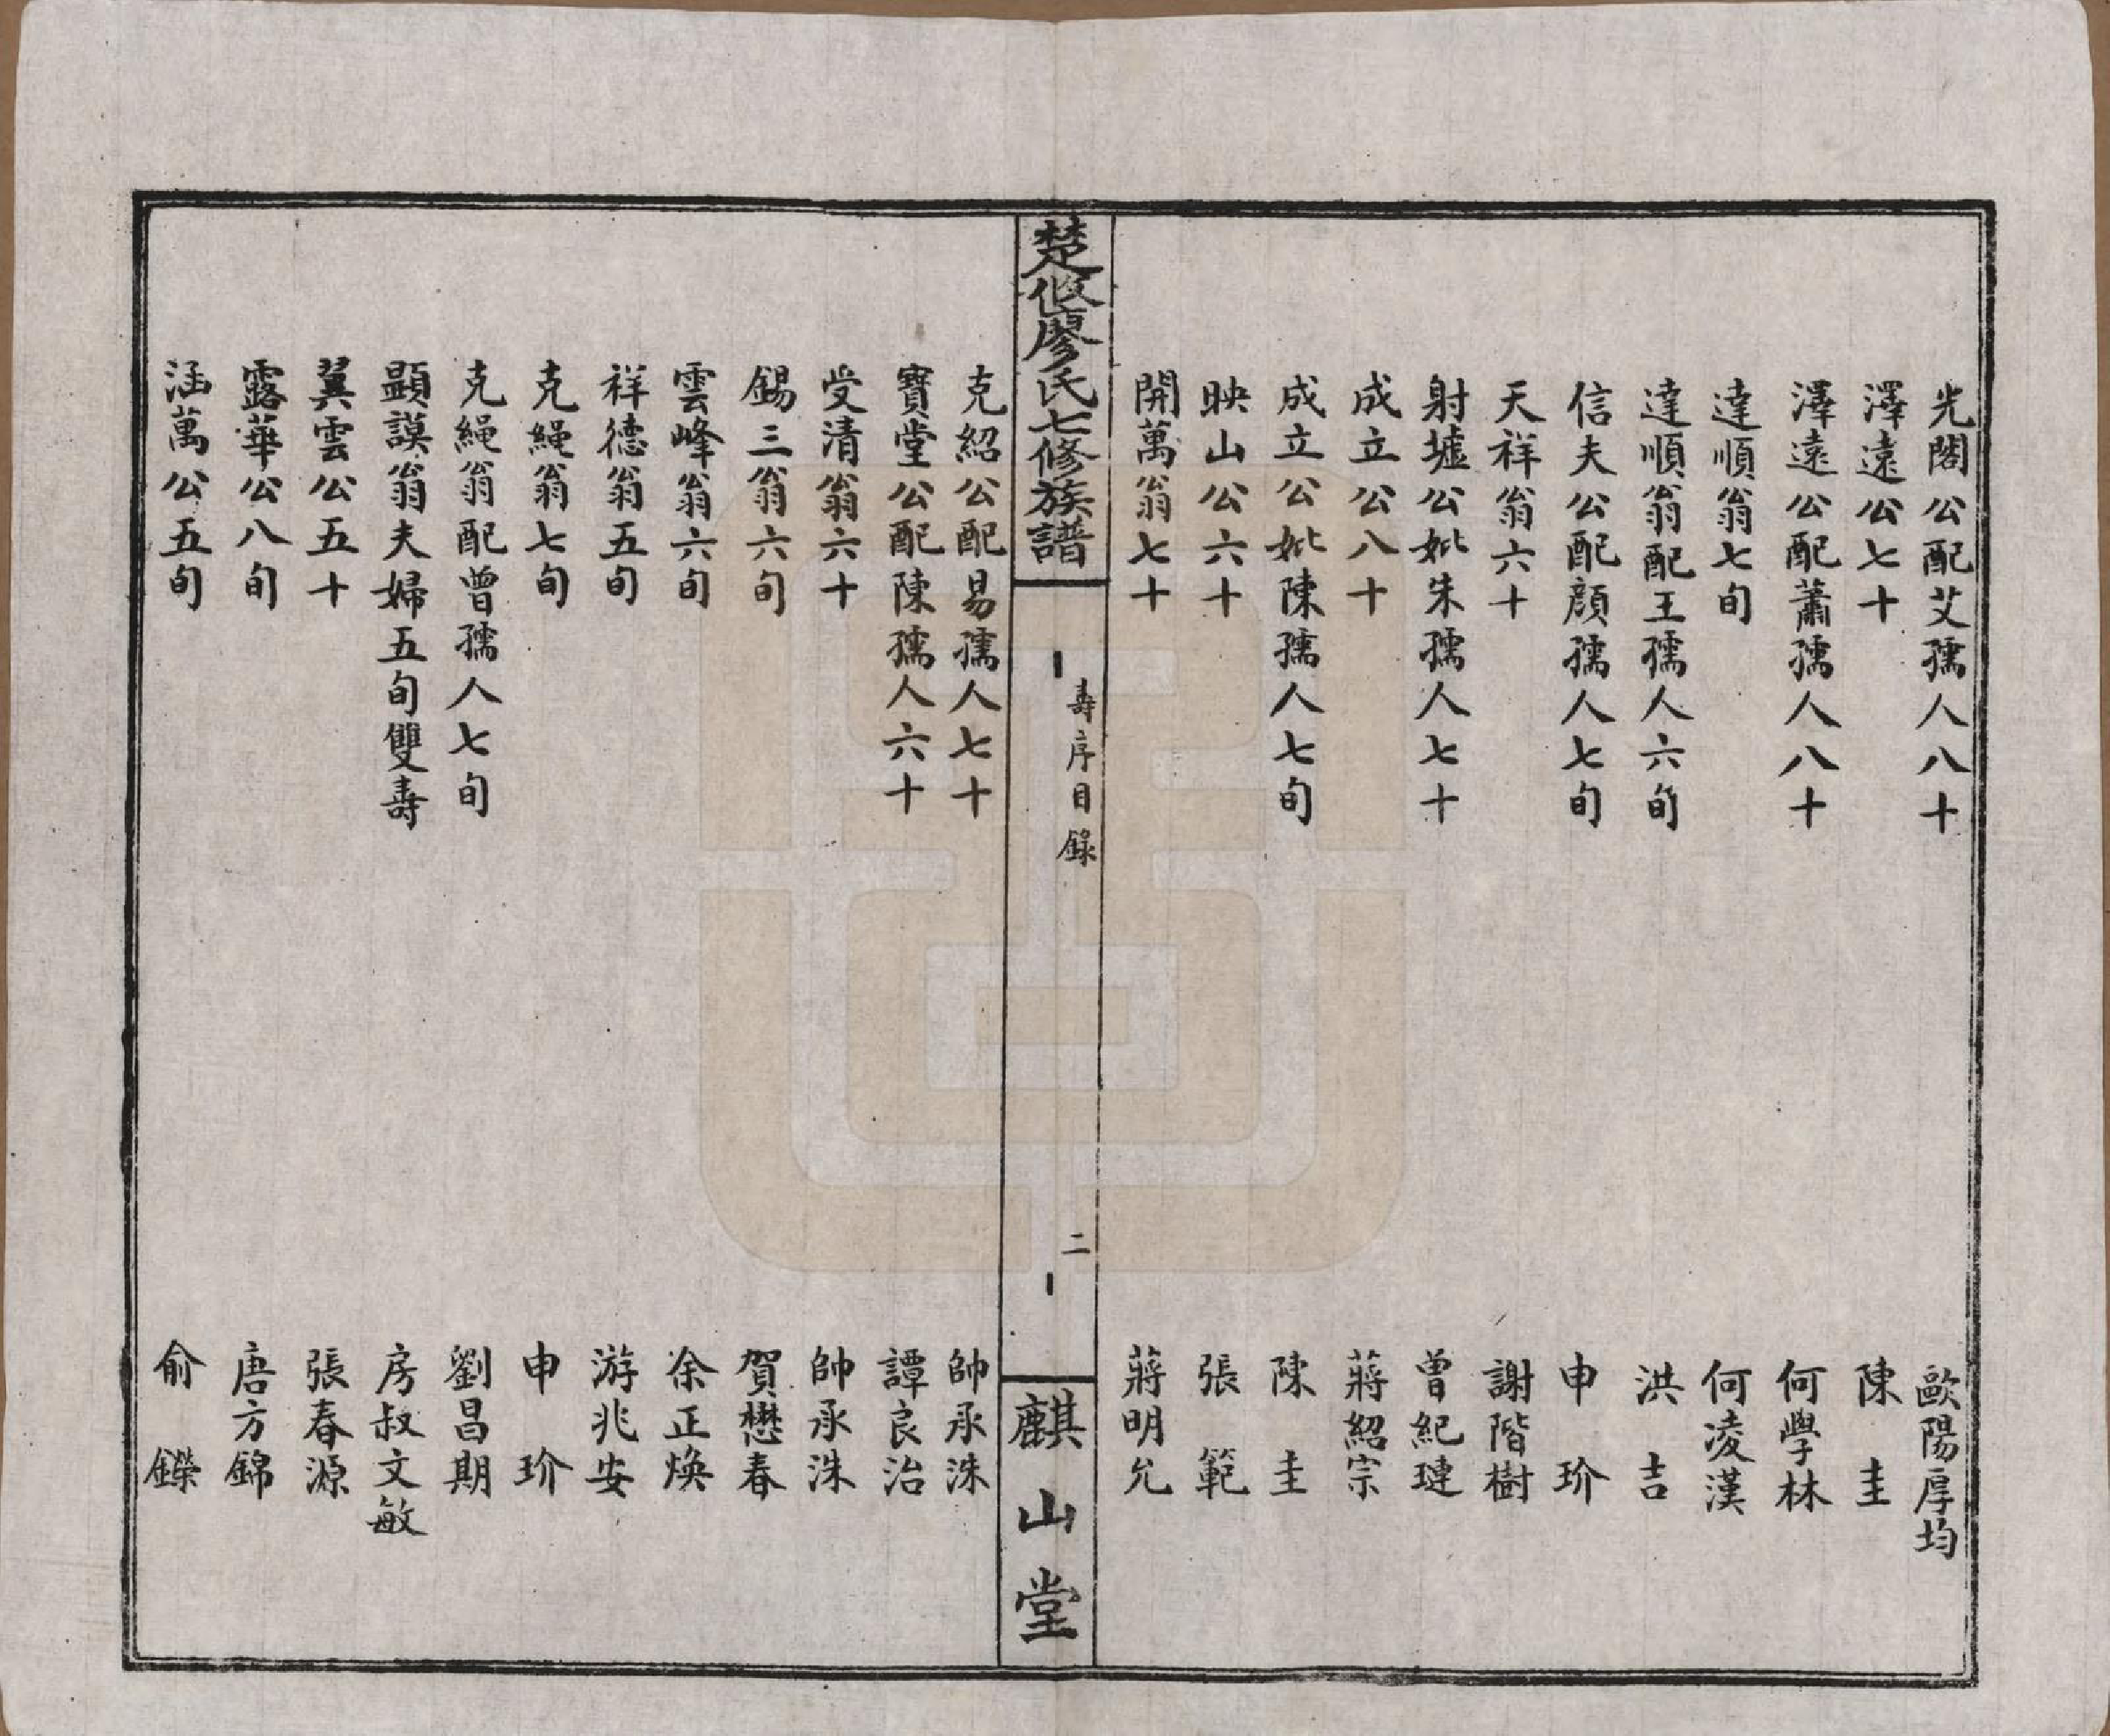 光閣公配艾孺人八十 歐陽厚均
澤遠公七十 陳圭
澤遠公配蕭孺人八十 何學林
達順翁七旬 何凌漢
達順翁配王孺人六旬 洪吉
信夫公配顏孺人七旬 申玠
天祥翁六十 謝階樹
射墟公妣朱孺人七十 曾紀璉
成立公八十 蔣紹宗
成立公妣陳孺人七旬 陳圭
映山公六十 張範
開萬翁七十 蔣明允
楚攸廖氏七修族譜
壽序目錄
二
麒山堂
克紹公配易孺人七十 帥承洙
寶堂公配陳孺人六十 譚良治
受清翁六十 帥承洙
錫三翁六旬 賀懋春
雲峰翁六旬 余正煥
祥德翁五旬 游兆安
克繩翁七旬 申玠
克繩翁配曾孺人七旬 劉昌期
顯謨翁夫婦五旬雙壽 房叔文敏
翼雲公五十 張春源
露華公八旬 唐方錦
涵萬公五旬 俞鑅